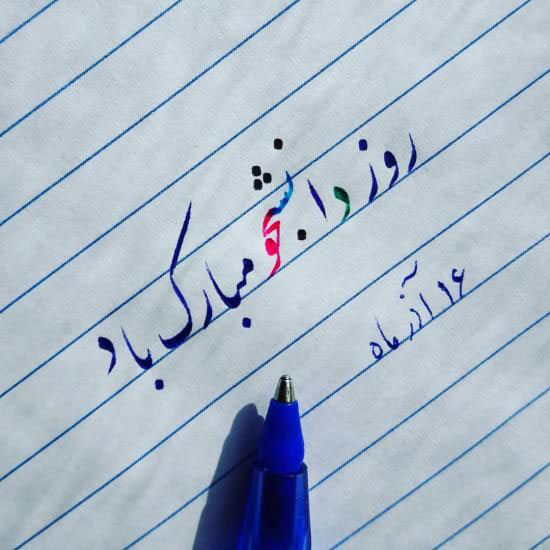 روز دانشجو مبارک باد
۱۶ آذر ماه